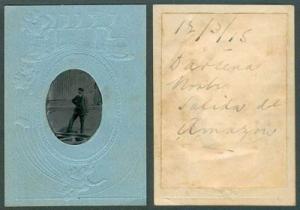 12/3/15
Darsena
Norte
Salida de
Amazon